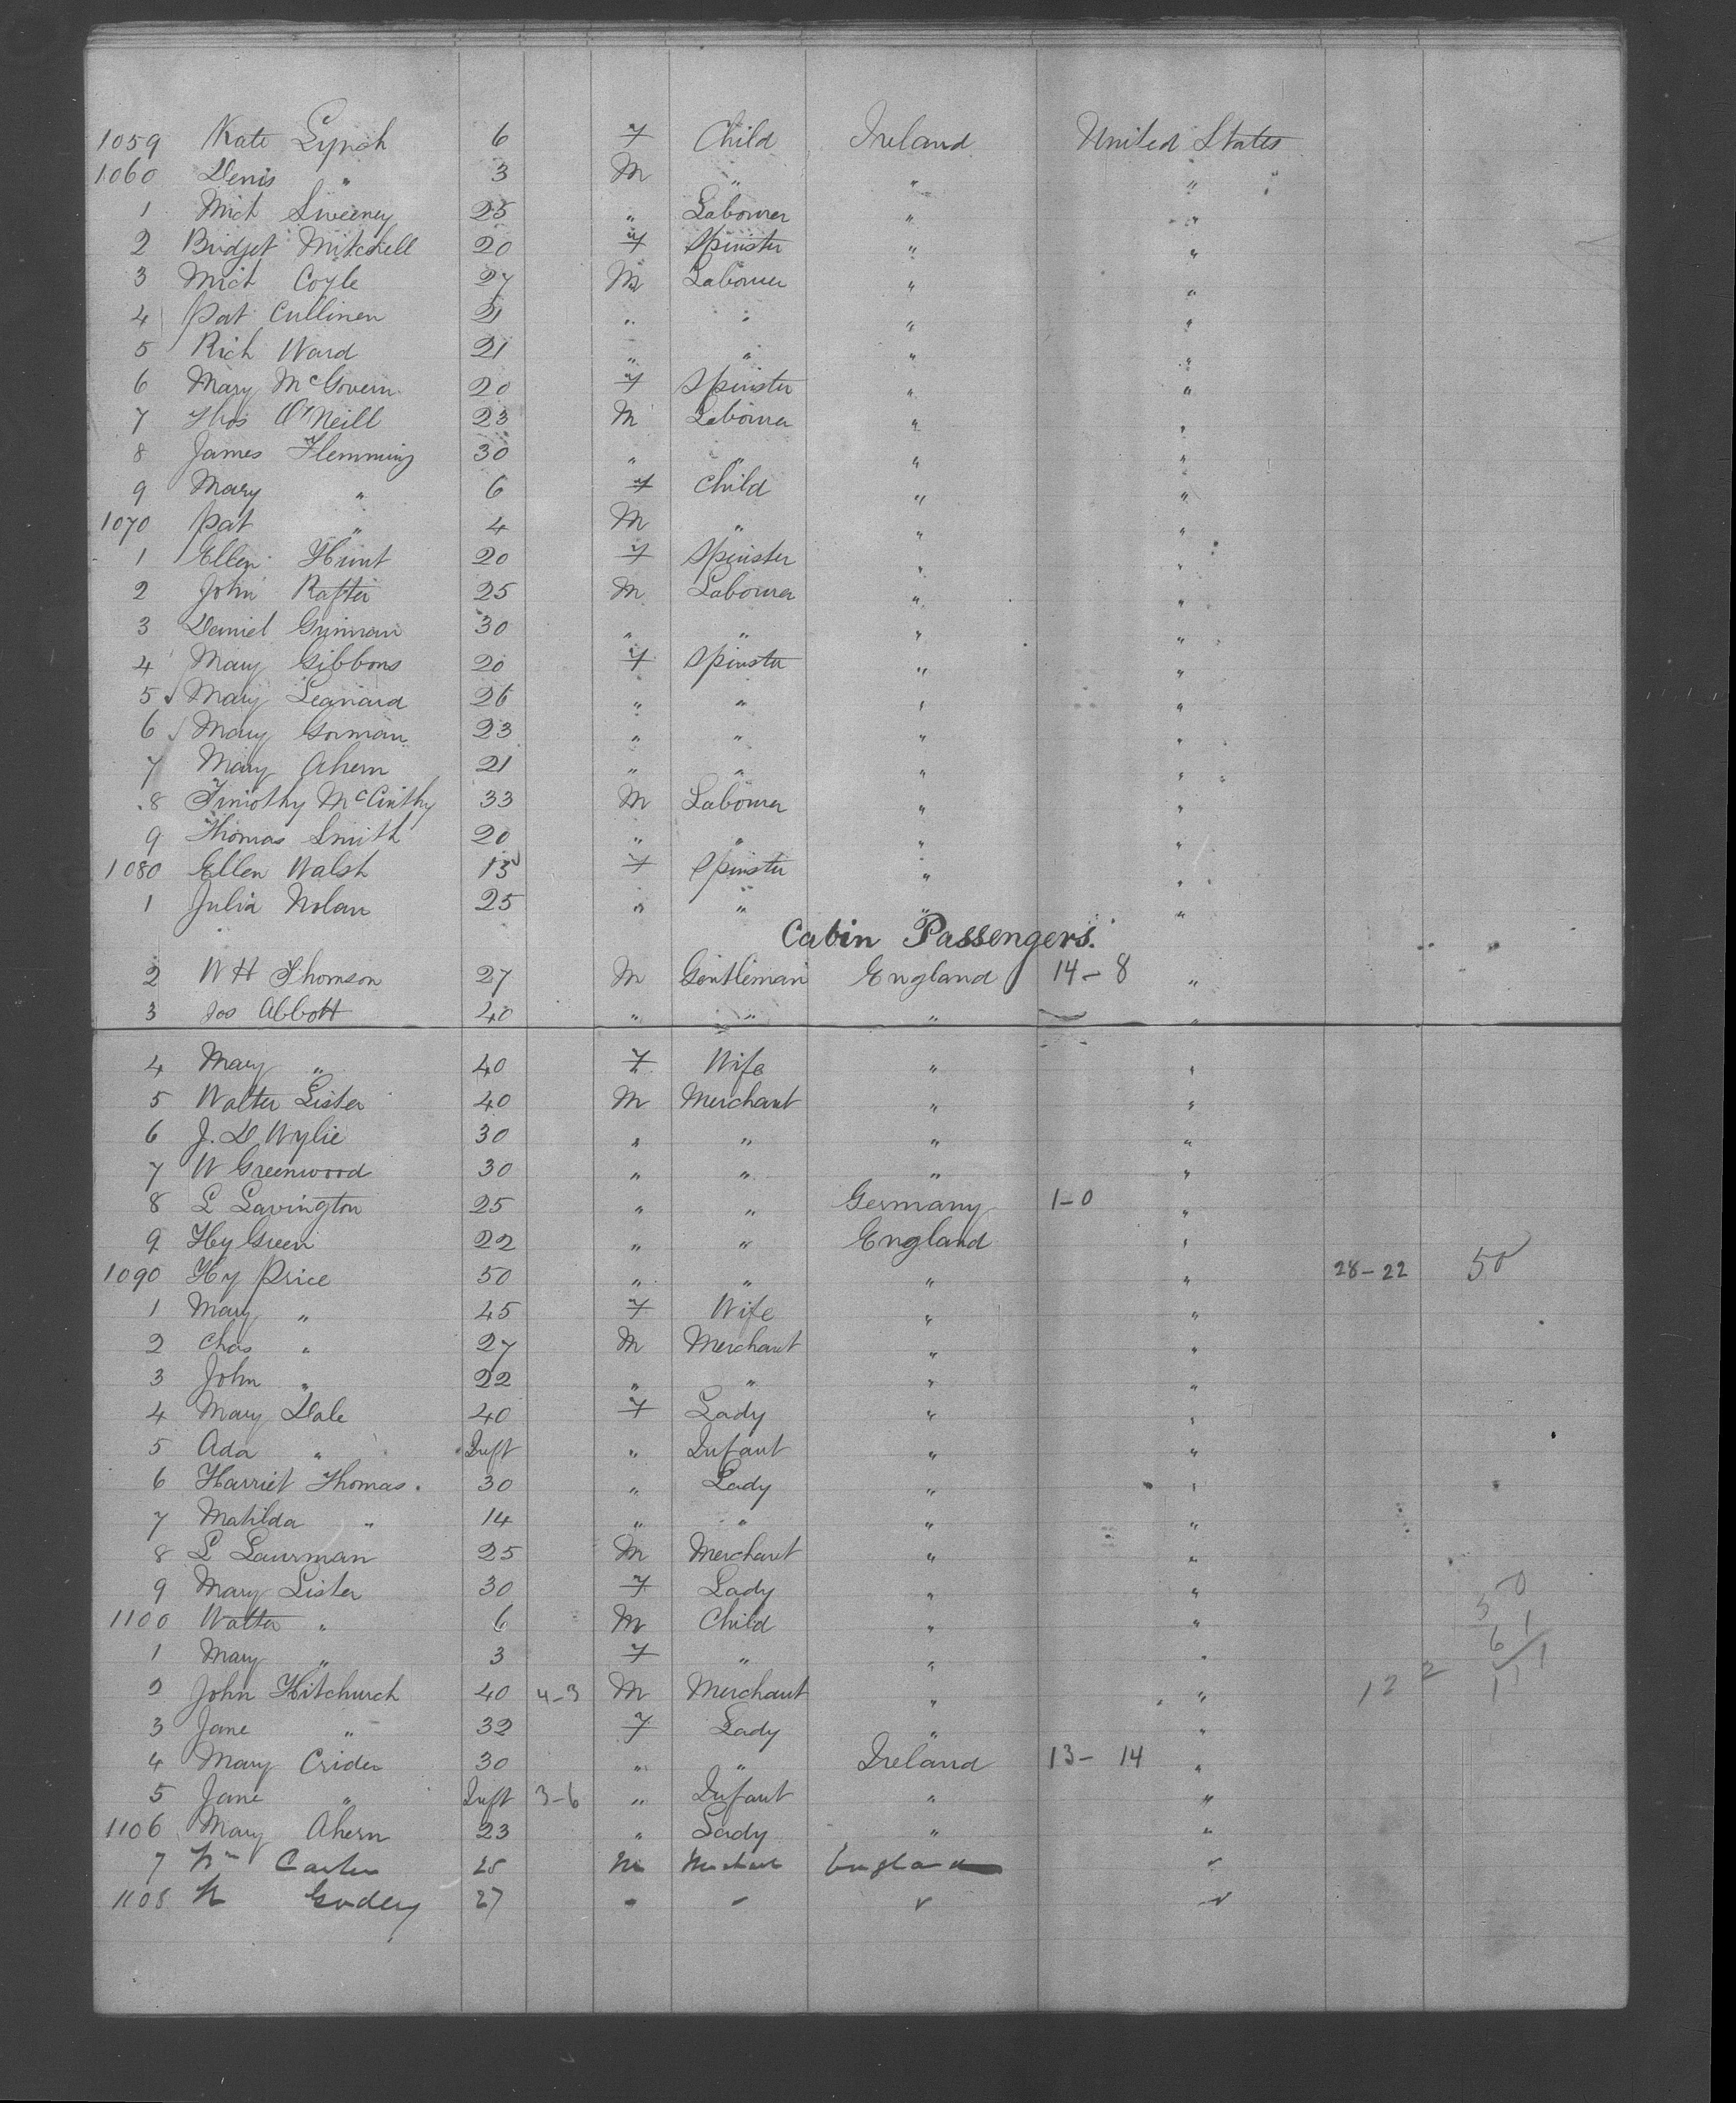 1059 Kate Lynch 6 F Child Ireland United States
1060 Denis " 3 M " " "
1 Mich Sweeney 25 " Labourer " "
2 Bridget Mitchell 20 F Spinster " "
3 Mich Coyle 27 M Labourer " "
4 Pat Cullinen 21 " " " "
5 Rich Ward 21 " " " "
6 Mary McGovern 20 F Spinster " "
7 Thos O'Neill 23 M Labourer " "
8 James Flemming 30 " " " "
9 Mary " 6 F Child " "
1070 Pat " 4 M " " "
1 Ellen Hunt 20 F Spinster " "
2 John Rafter 25 M Labourer " "
3 Daniel Grinnan 30 " " " "
4 Mary Gibbons 20 F Spinster " "
5 Mary Leanard 26 " " " "
6 Mary Gorman 23 " " " "
7 Mary Ahern 21 " " " "
8 Timothy McCinthy 33 M Labourer " "
9 Thomas Smith 20 " " " "
1080 Ellen Walsh 15 F Spinster " "
1 Julia Nolan 25 " " " "
Cabin Passengers.
2 W H Thomson 27 M Gentleman England 14-8 "
3 Jos Abbott 40 " " " "
4 Mary " 40 F Wife " "
5 Walter Lister 40 M Merchant " "
6 J. D Wylie 30 " " " "
7 W Greenwood 30 " " " "
8 L Lavington 25 " " Germany 1-0 "
9 Hy Green 22 " " England "
1090 Hy Price 50 " " " " 28-22 50
1 Mary " 45 F Wife " "
2 Chas " 27 M Merchant " "
3 John " 22 " " " "
4 Mary Dale 40 F Lady " "
5 Ada " Inft " Infant " "
6 Harriet Thomas. 30 " Lady " "
7 Matilda " 14 " " " "
8 L Laurman 25 M Merchant " "
9 Mary Lister 30 F Lady " "
1100 Walter " 6 M Child " "
1 Mary " 3 F " " "
2 John Hitchurch 40 4-3 M Merchant " " 12 2
3 Jane " 32 F Lady " "
4 Mary Crider 30 " " Ireland 13-14 "
5 Jane " Inft 3-6 " Infant " "
1106 Mary Ahern 23 " Lady " "
7 Wm Carter 25 M Merchant England "
1108 27 " " " "